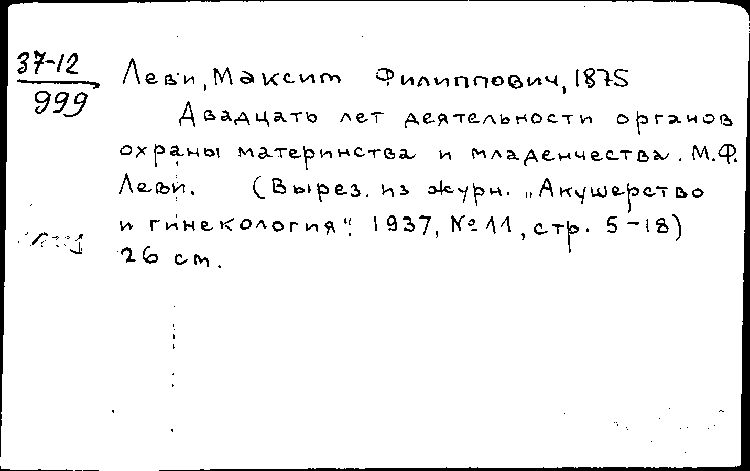 37-12
999
Леви, Максим Филиппович, 1875
Двадцать лет деятельности органов
охраны материнства и младенчества. М.Ф.
Леви. (Вырез. из журн. „Акушерство
и гинекология". 1937, №11, стр. 5-18)
26 cm.